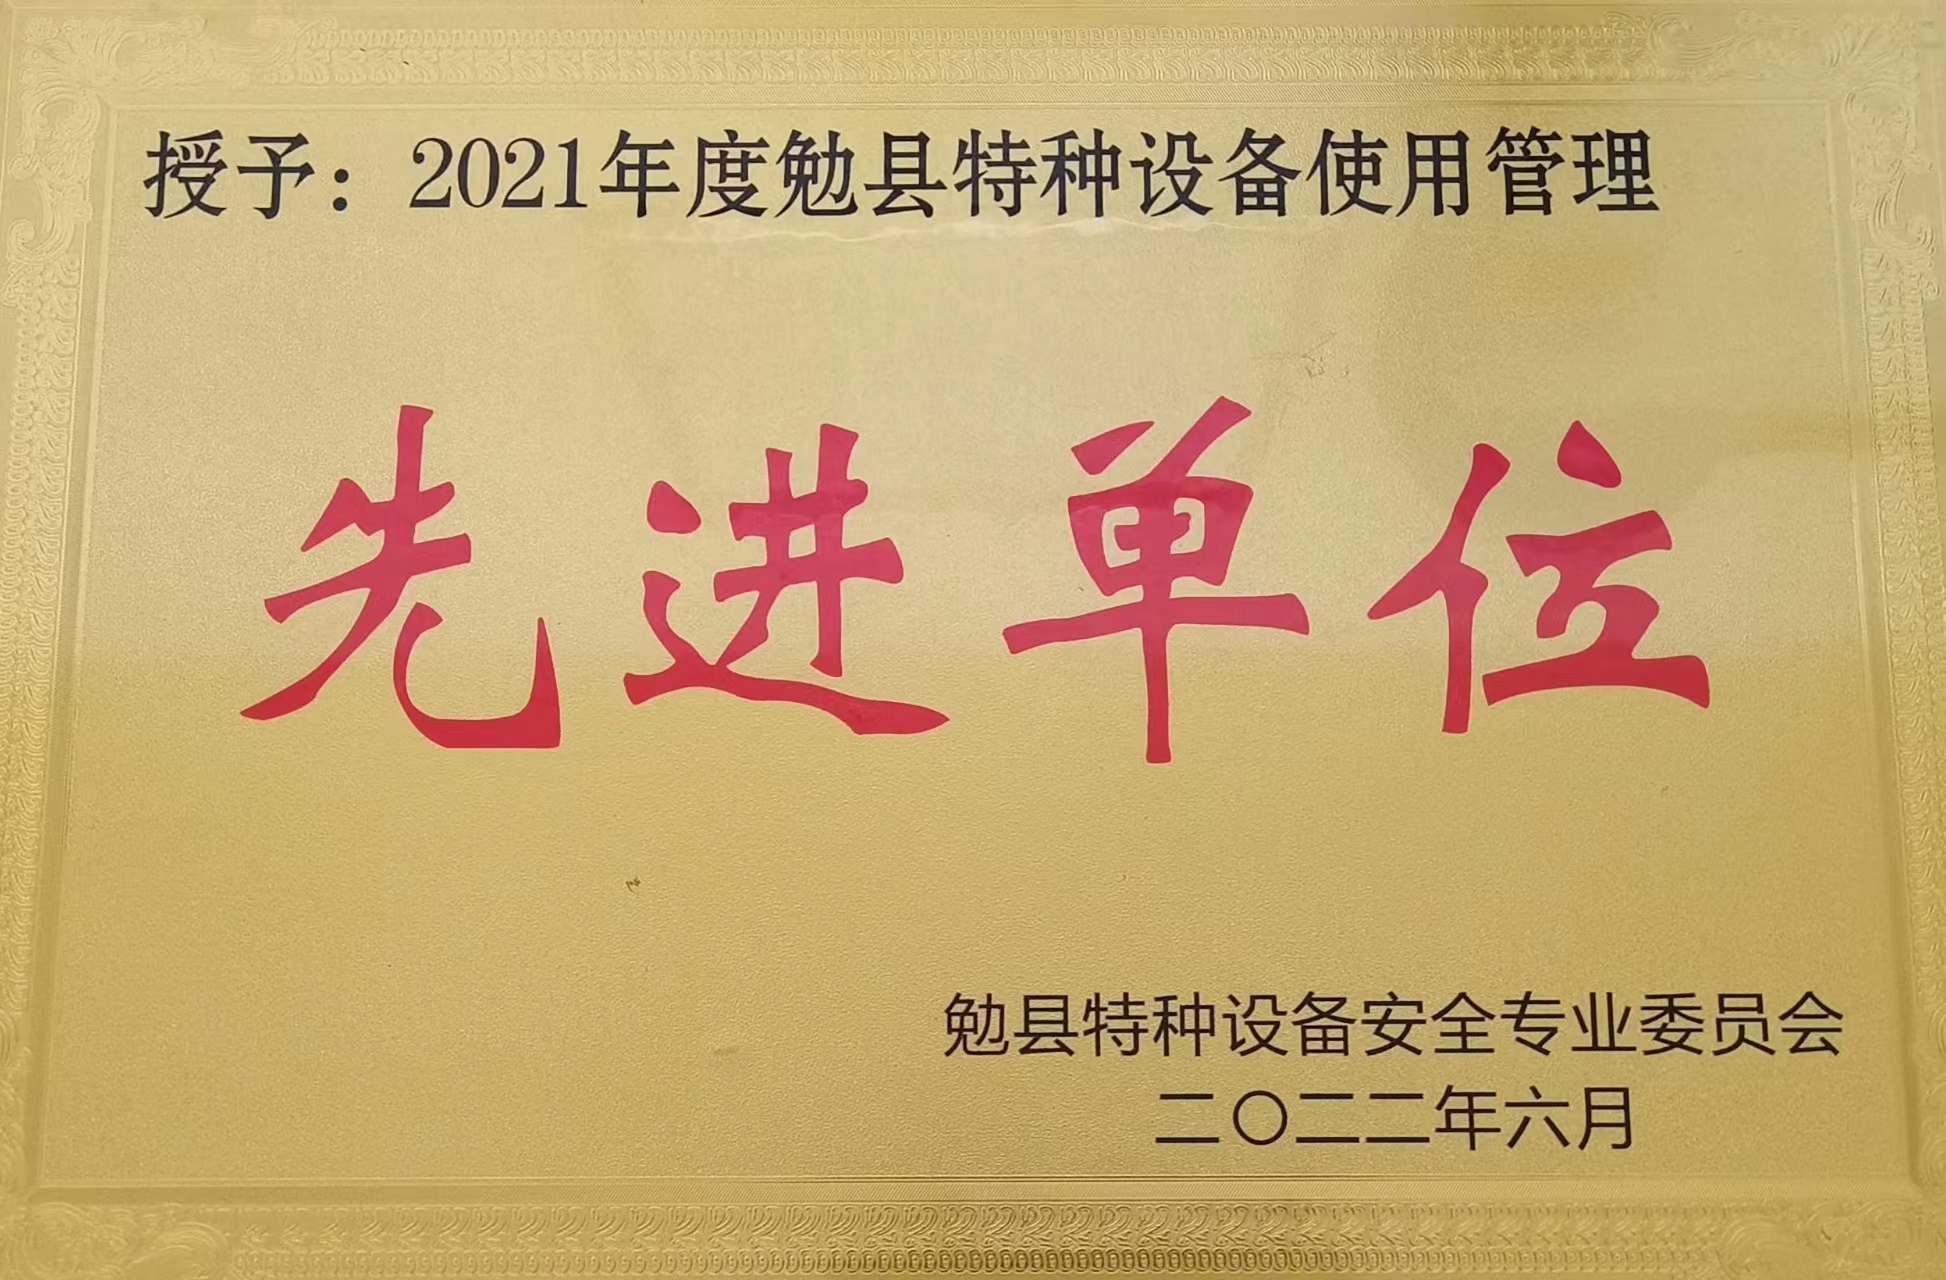 授予：2021年度勉县特种设备使用管理
先进单位
勉县特种设备安全专业委员会
二〇二二年六月